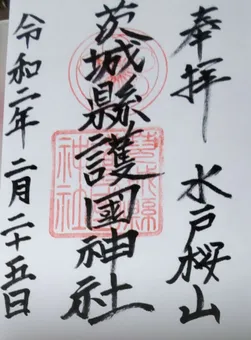 奉拝 水戸桜山
茨城縣護國神社
令和二年二月二十五日
茨城縣護國神社